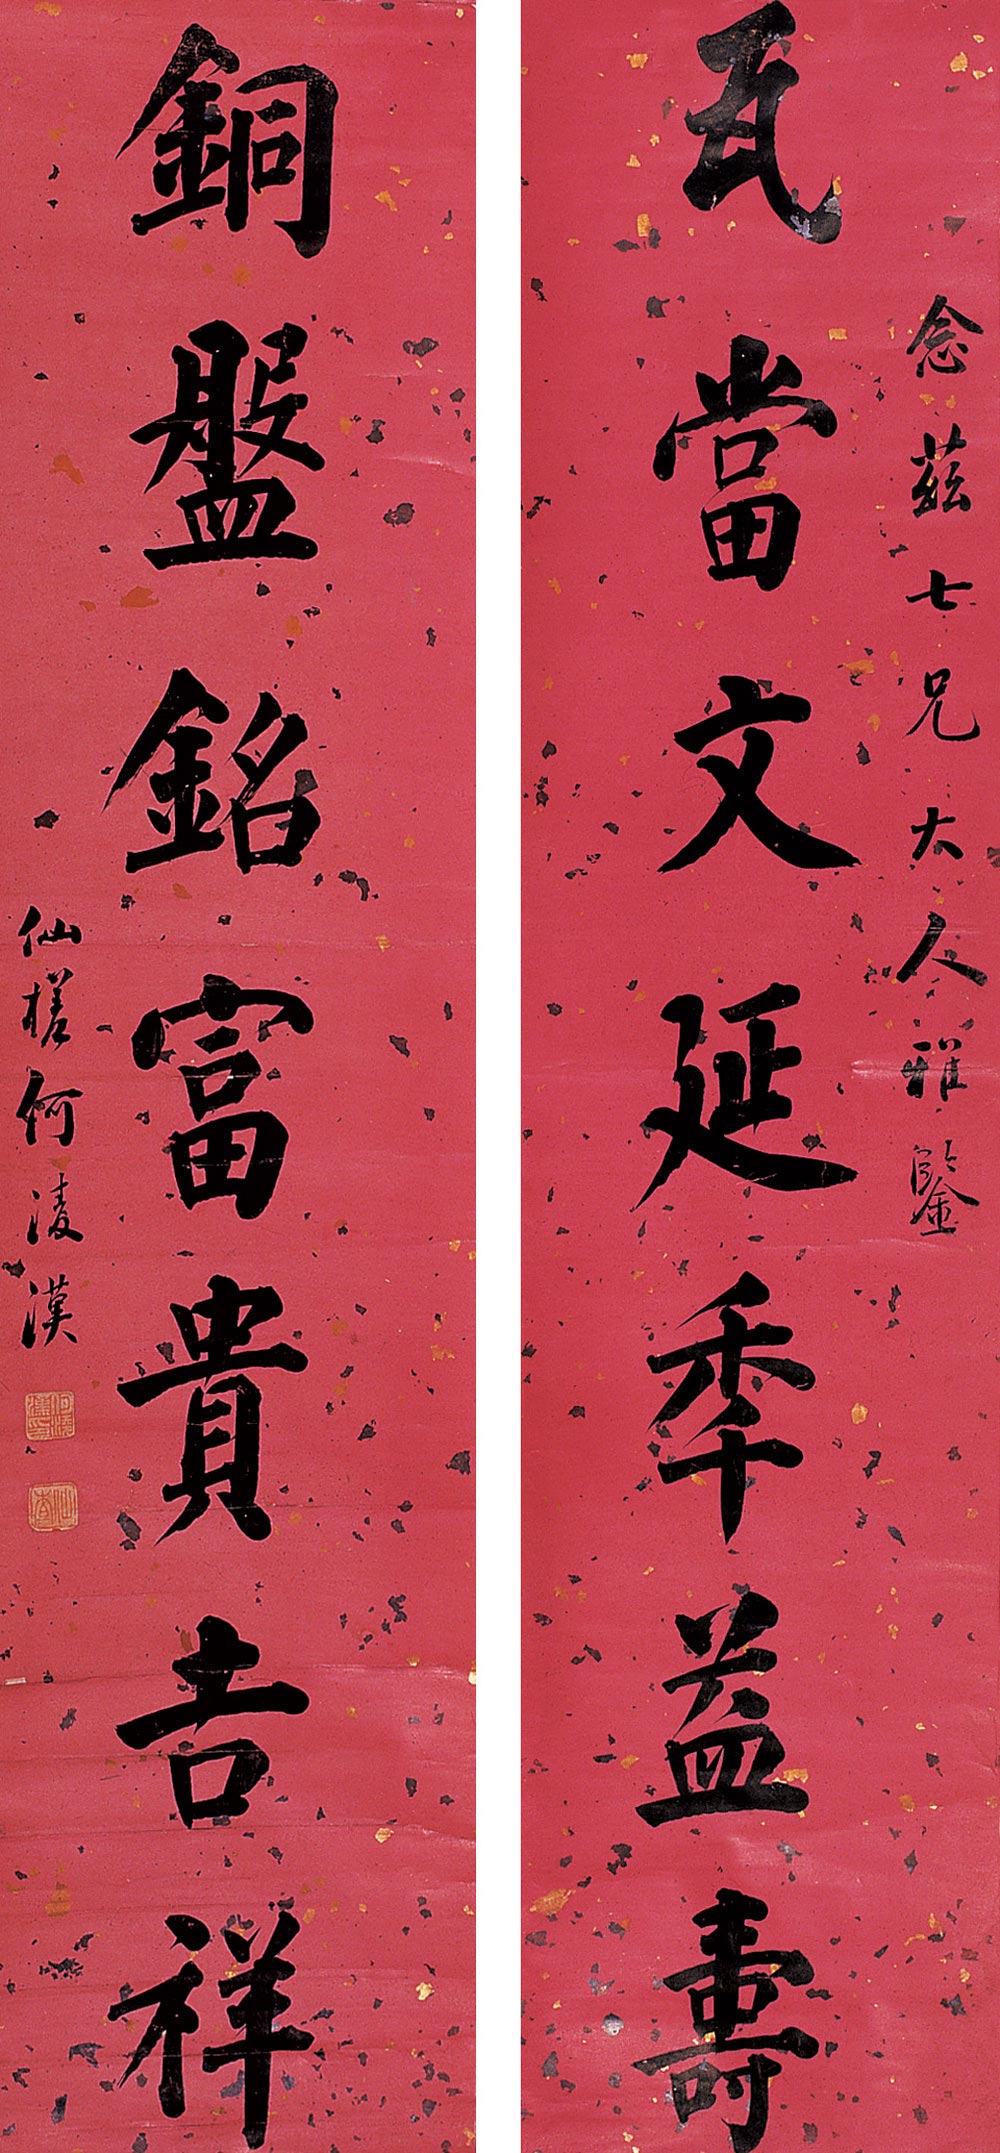 念茲七兄大人雅鑒
瓦當文延秊益壽
銅盤銘富貴吉祥
仙槎何凌漢